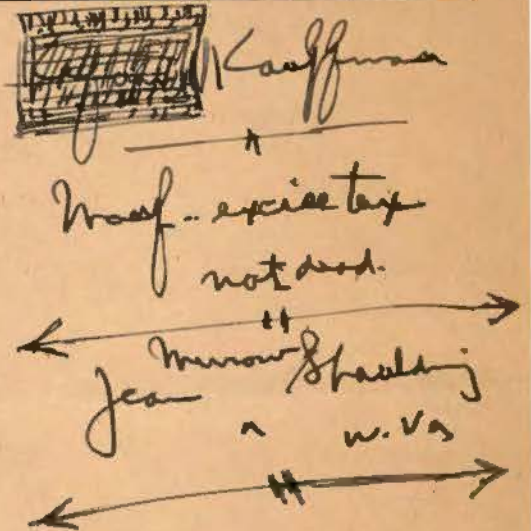 Kauffman
excise tax
not dead.
Jean Murrow Spaulding
W. Va